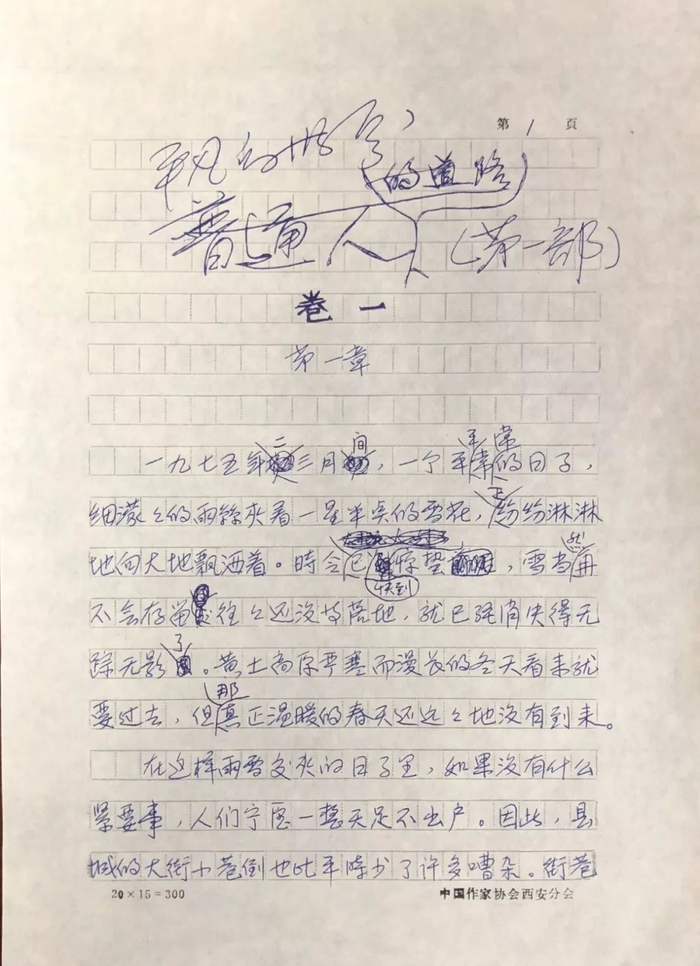 第 1 页
平凡的世界
的道路
普通人
(第一部)
卷一
第一章
二 间 平常
一九七五年三月,一个平常的日子,
细濛々的雨絲夹着一星半点的雪花,正纷纷淋淋
地向大地飘洒着。時令已快到惊蛰,雪当然再
不会存留,往々还没等落地,就已经消失得无
踪无影了。黄土高原严寒而漫长的冬天看来就
要过去,但那真正温暖的春天还远々地没有到来。
在这样雨雪交夹的日子里,如果没有什么
紧要事,人们宁愿一整天足不出户。因此,县
城的大街小巷倒也比平時少了许多嘈杂。街巷
20×15=300
中国作家协会西安分会